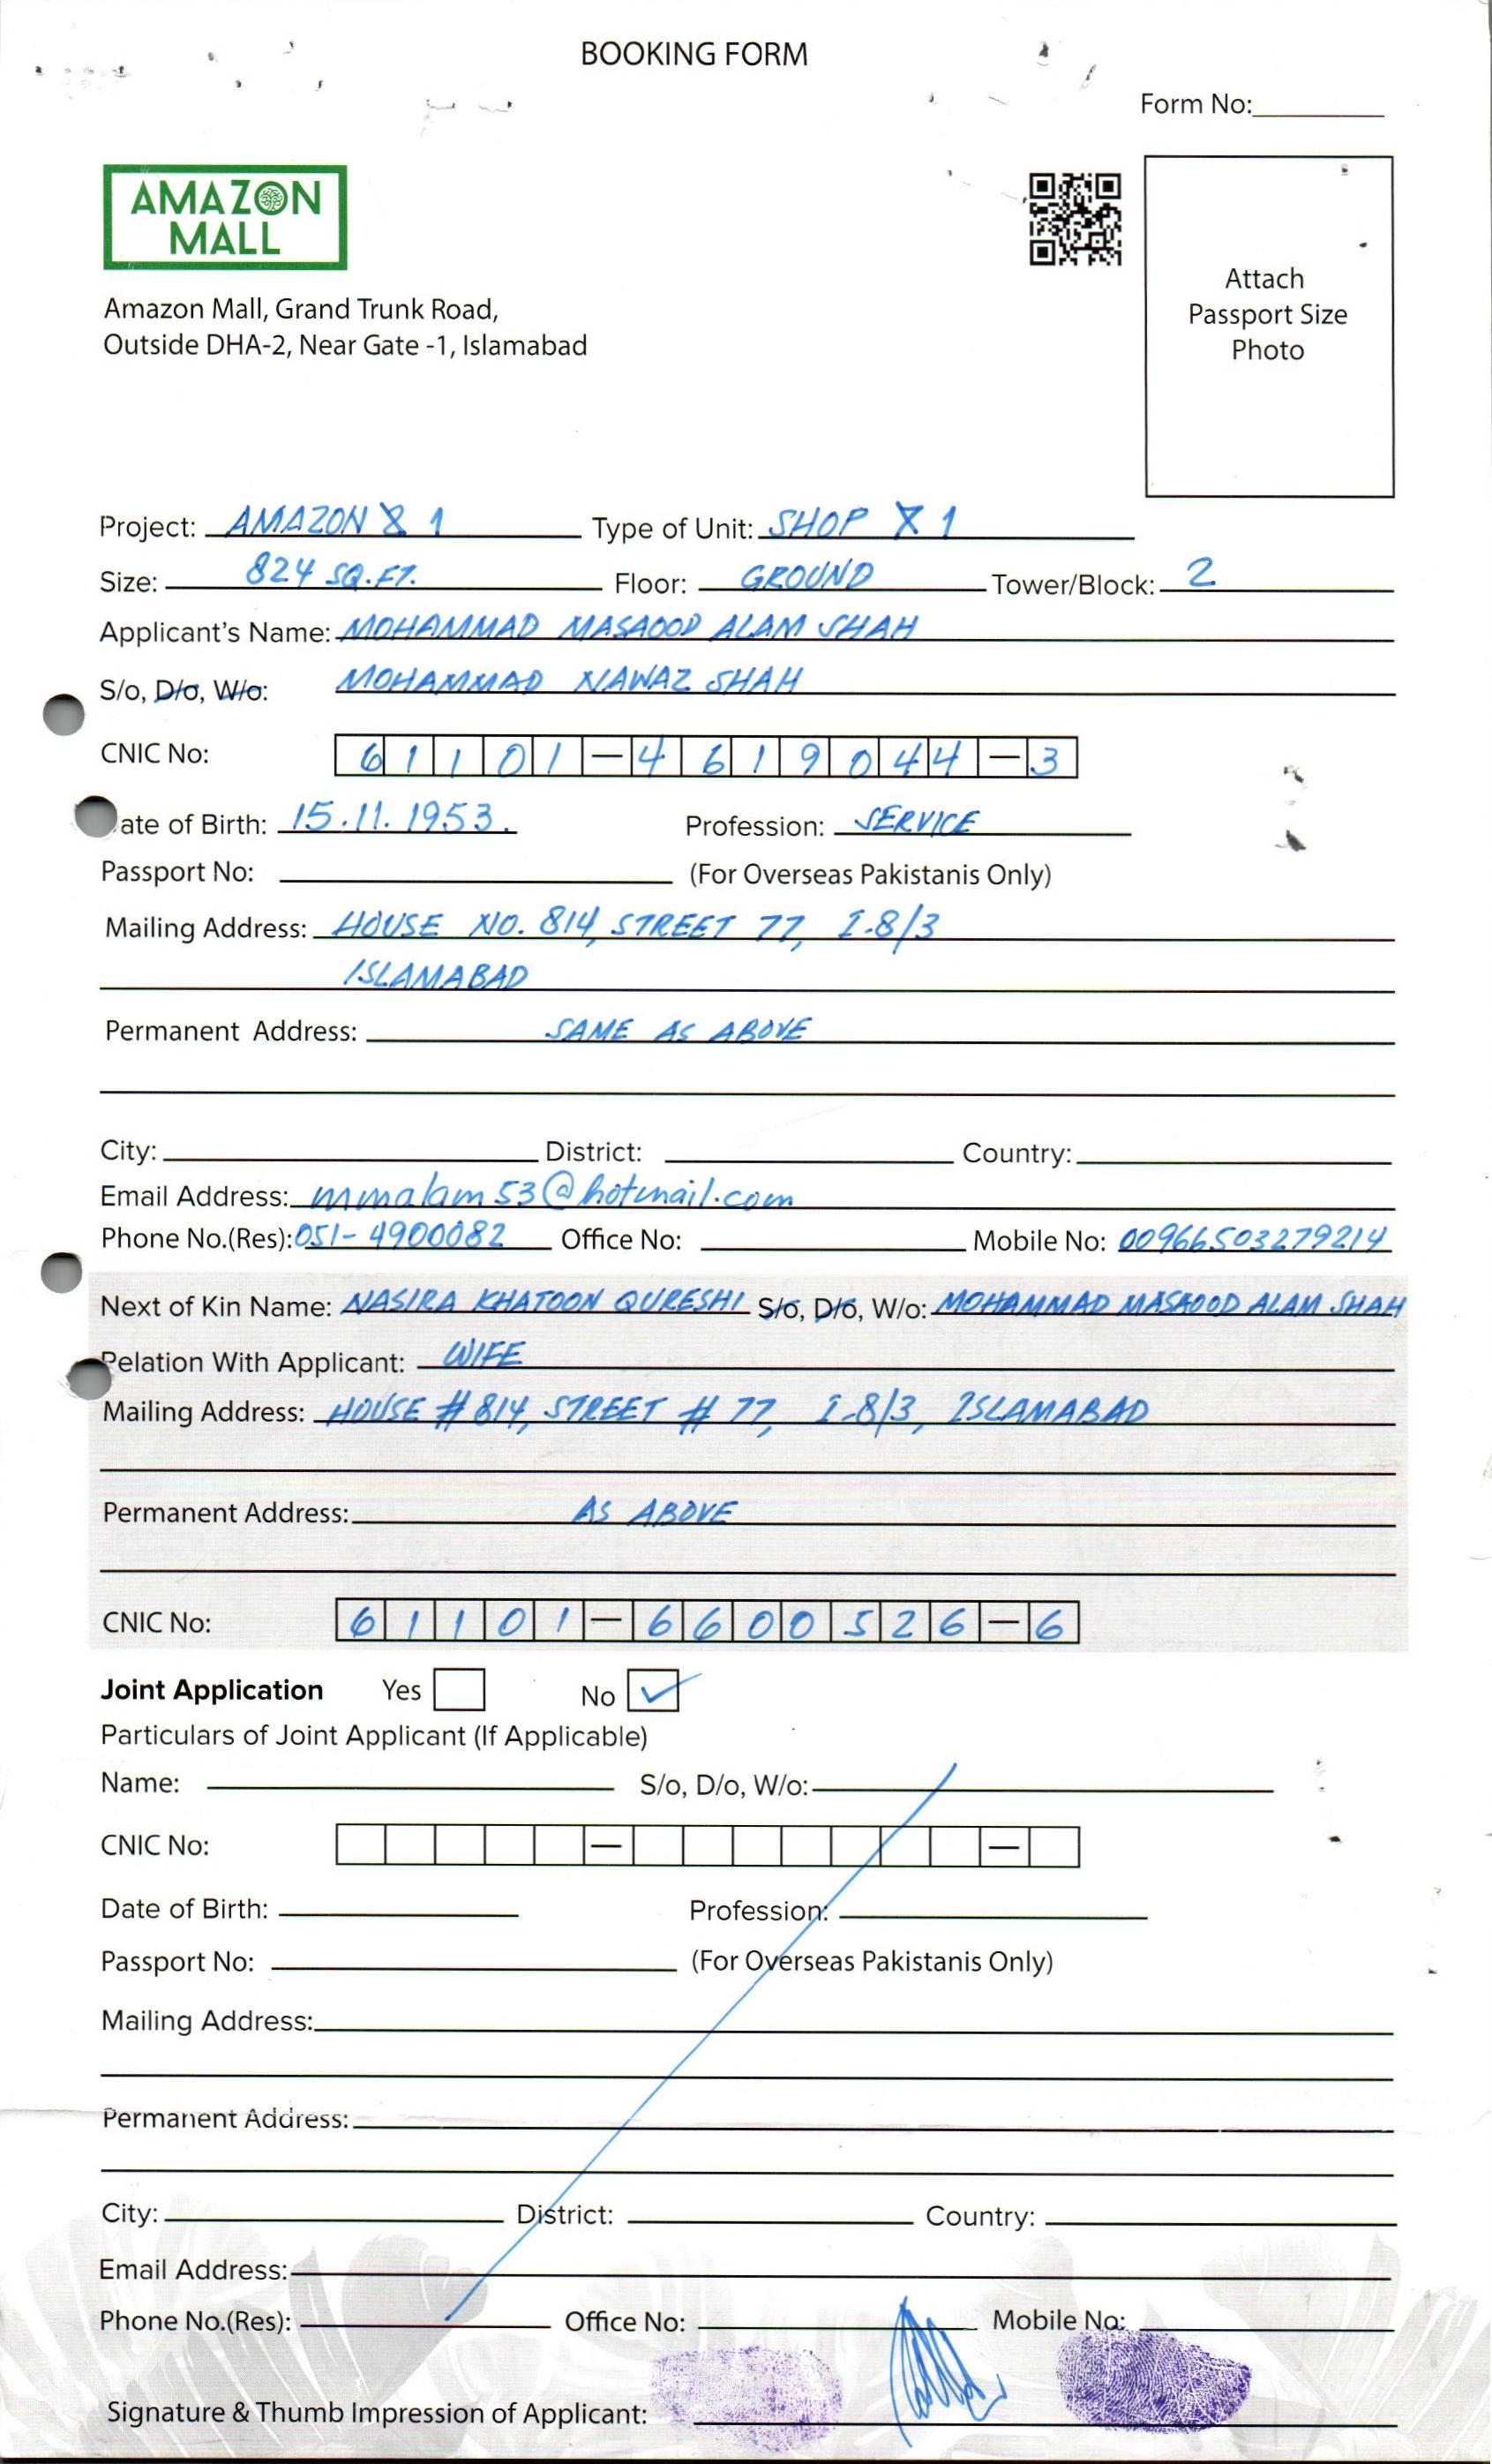 BOOKING FORM
Form No:
AMAZON
MALL
Attach
Passport Size
Photo
Amazon Mall, Grand Trunk Road,
Outside DHA-2, Near Gate -1, Islamabad
Project: AMAZON X 1 Type of Unit: SHOP X 1
Size: 824 SQ.FT. Floor: GROUND Tower/Block: 2
Applicant's Name: MOHAMMAD MASAOOD ALAM SHAH
S/o, D/o, W/o: MOHAMMAD NAWAZ SHAH
CNIC No: 61101-4619044-3
Date of Birth: 15.11.1953. Profession: SERVICE
Passport No: (For Overseas Pakistanis Only)
Mailing Address: HOUSE NO. 814, STREET 77, I-8/3
ISLAMABAD
Permanent Address: SAME AS ABOVE
City: District: Country:
Email Address: mmalam53@hotmail.com
Phone No.(Res): 051-4900082 Office No: Mobile No: 00966503279214
Next of Kin Name: NASIRA KHATOON QURESHI S/o, D/o, W/o: MOHAMMAD MASAOOD ALAM SHAH
Relation With Applicant: WIFE
Mailing Address: HOUSE # 814, STREET # 77, I-8/3, ISLAMABAD
Permanent Address: AS ABOVE
CNIC No: 61101-6600526-6
Joint Application Yes No ✓
Particulars of Joint Applicant (If Applicable)
Name: S/o, D/o, W/o:
CNIC No: — —
Date of Birth: Profession:
Passport No: (For Overseas Pakistanis Only)
Mailing Address:
Permanent Address:
City: District: Country:
Email Address:
Phone No.(Res): Office No: Mobile No:
Signature & Thumb Impression of Applicant: